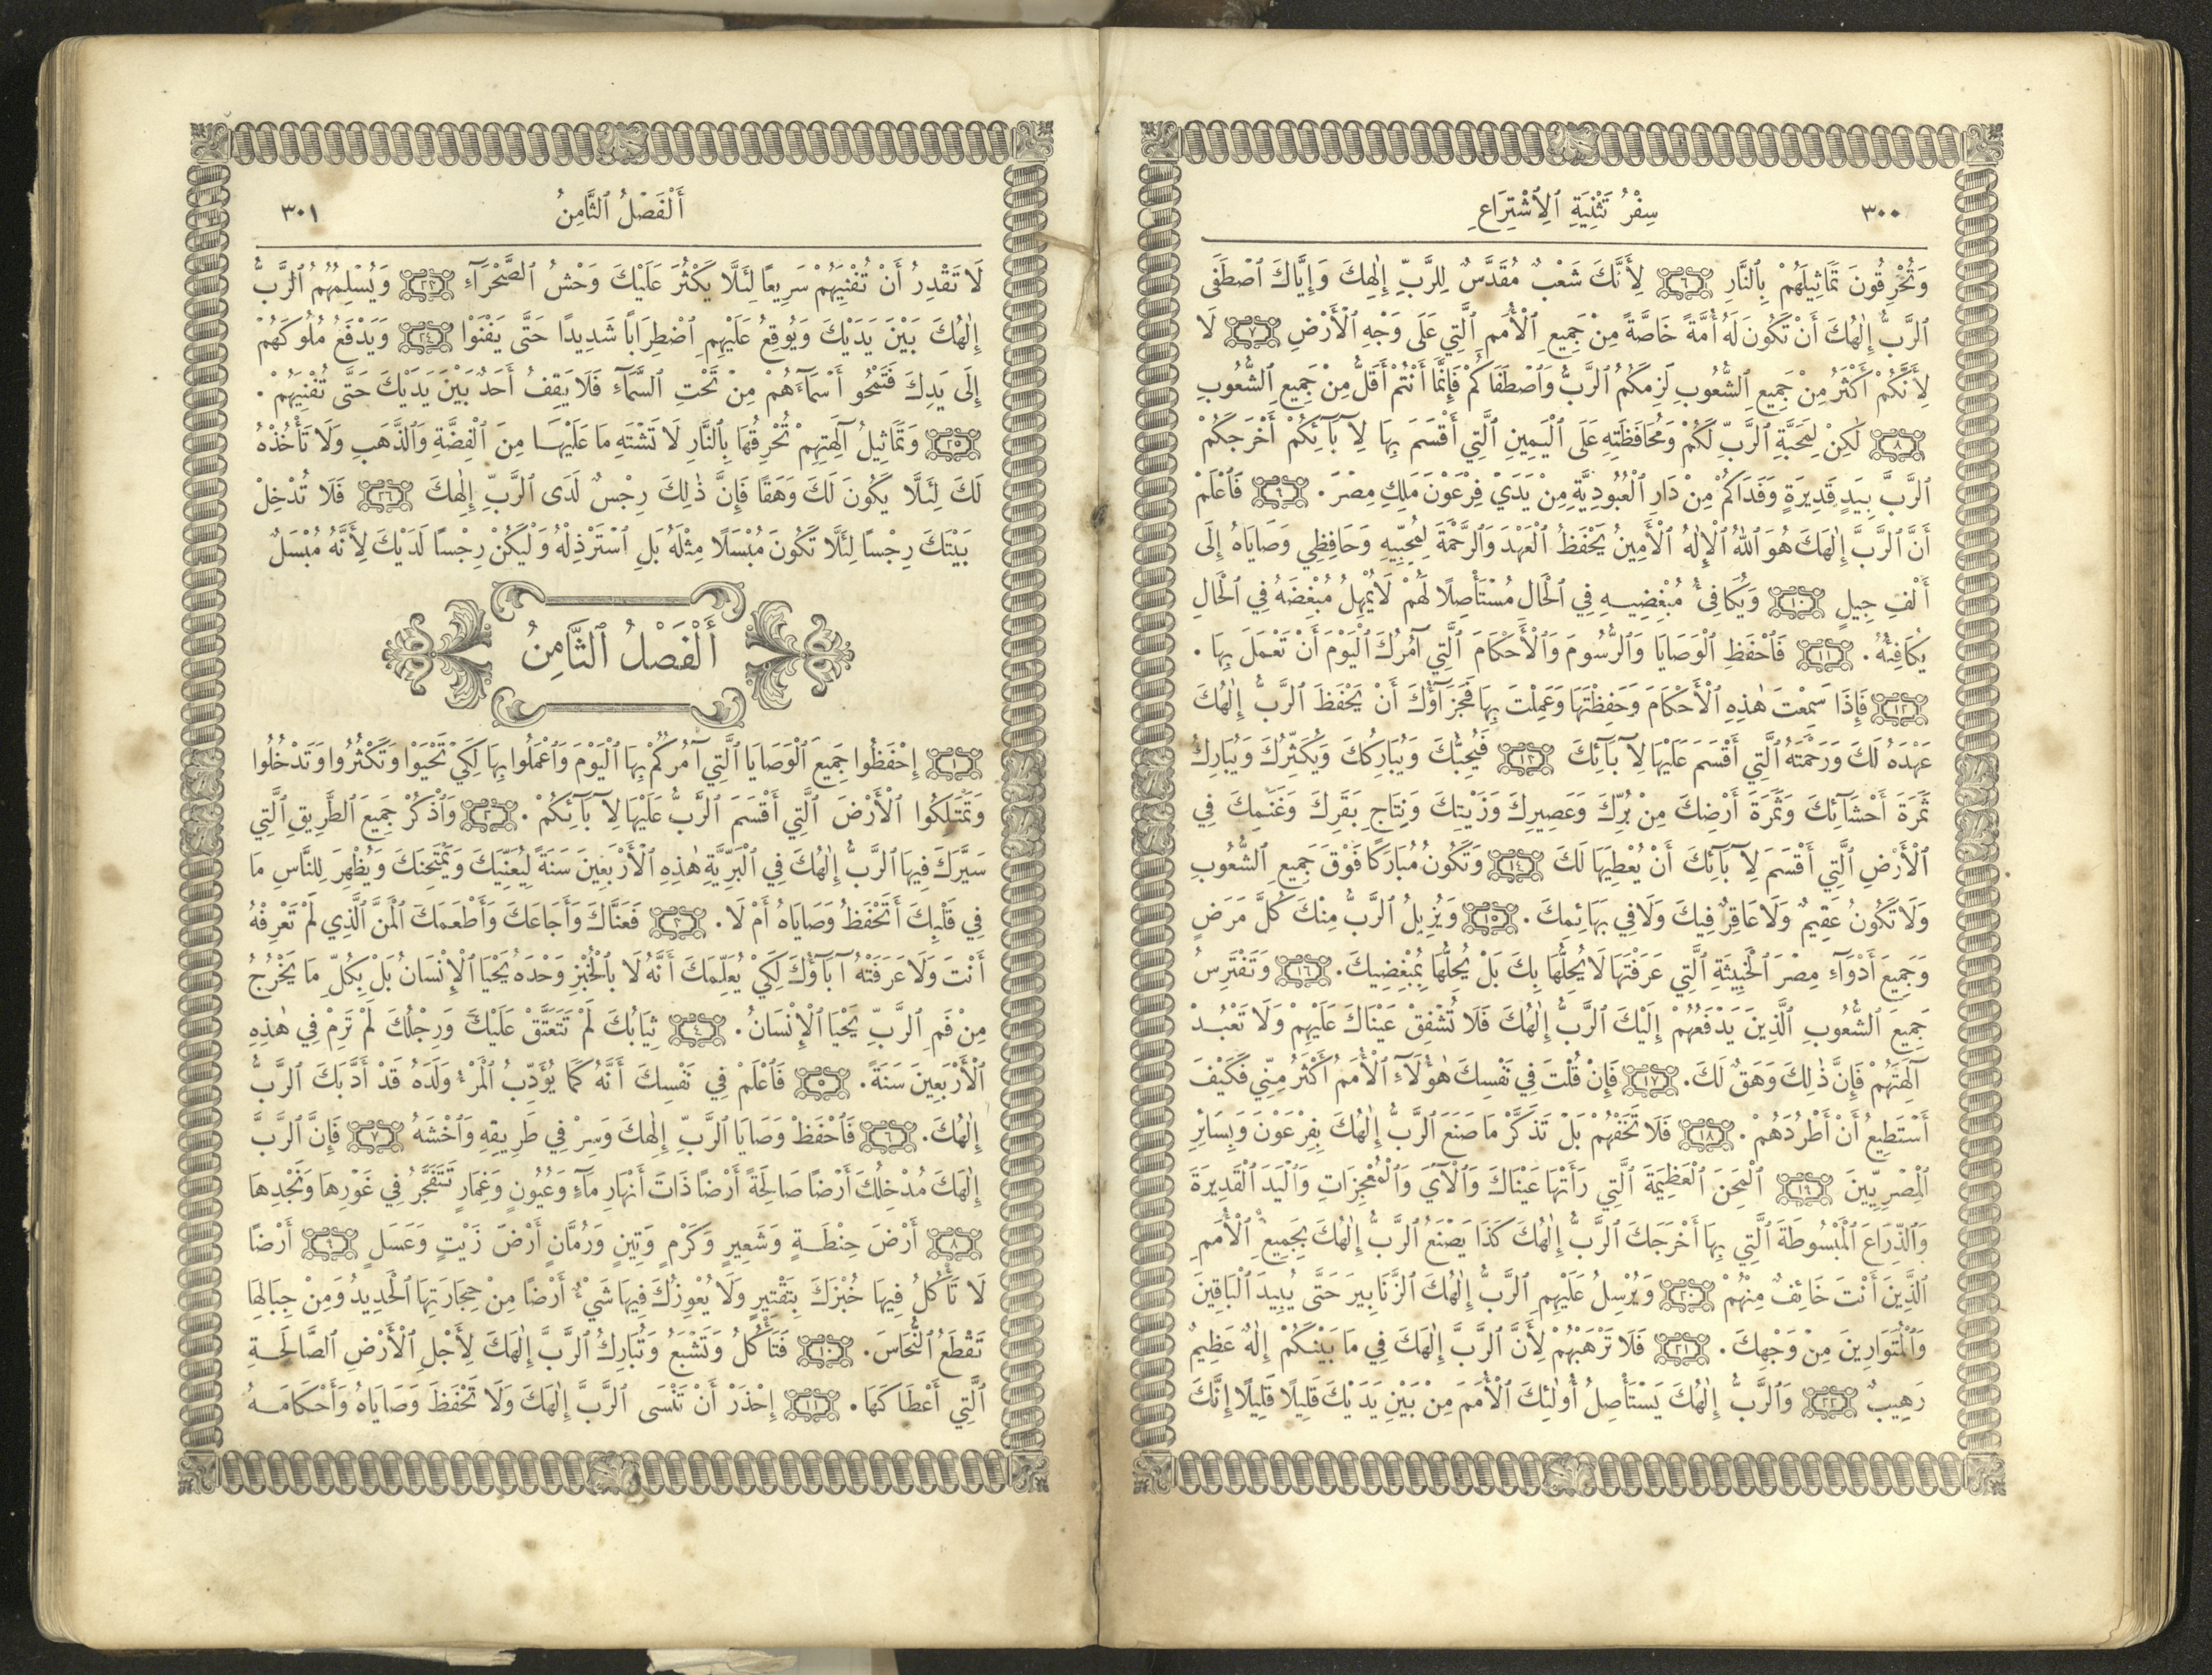 ٣٠٠ سِفْرُ تَثْنِيَةِ ٱلِٱشْتِرَاعِ
وَتُحْرِقُونَ تَمَاثِيلَهُمْ بِٱلنَّارِ ٦ لِأَنَّكَ شَعْبٌ مُقَدَّسٌ لِلرَّبِّ إِلٰهِكَ وَإِيَّاكَ ٱصْطَفَى
ٱلرَّبُّ إِلٰهُكَ أَنْ تَكُونَ لَهُ أُمَّةً خَاصَّةً مِنْ جَمِيعِ ٱلْأُمَمِ ٱلَّتِي عَلَى وَجْهِ ٱلْأَرْضِ ٧ لَا
لِأَنَّكُمْ أَكْثَرُ مِنْ جَمِيعِ ٱلشُّعُوبِ لَزِمَكُمُ ٱلرَّبُّ وَٱصْطَفَاكُمْ فَإِنَّمَا أَنْتُمْ أَقَلُّ مِنْ جَمِيعِ ٱلشُّعُوبِ
٨ لٰكِنْ لِمَحَبَّةِ ٱلرَّبِّ لَكُمْ وَمُحَافَظَتِهِ عَلَى ٱلْيَمِينِ ٱلَّتِي أَقْسَمَ بِهَا لِآبَآئِكُمْ أَخْرَجَكُمْ
ٱلرَّبُّ بِيَدٍ قَدِيرَةٍ وَفَدَاكُمْ مِنْ دَارِ ٱلْعُبُودِيَّةِ مِنْ يَدَيْ فِرْعَوْنَ مَلِكِ مِصْرَ. ٩ فَٱعْلَمْ
أَنَّ ٱلرَّبَّ إِلٰهَكَ هُوَ ٱللهُ ٱلْإِلٰهُ ٱلْأَمِينُ يَحْفَظُ ٱلْعَهْدَ وَٱلرَّحْمَةَ لِمُحِبِّيهِ وَحَافِظِي وَصَايَاهُ إِلَى
أَلْفِ جِيلٍ ١٠ وَيُكَافِئُ مُبْغِضِيهِ فِي ٱلْحَالِ مُسْتَأْصِلًا لَهُمْ لَا يُمْهِلُ مُبْغِضَهُ فِي ٱلْحَالِ
يُكَافِئُهُ. ١١ فَٱحْفَظِ ٱلْوَصَايَا وَٱلرُّسُومَ وَٱلْأَحْكَامَ ٱلَّتِي آمُرُكَ ٱلْيَوْمَ أَنْ تَعْمَلَ بِهَا.
١٢ فَإِذَا سَمِعْتَ هٰذِهِ ٱلْأَحْكَامَ وَحَفِظْتَهَا وَعَمِلْتَ بِهَا فَجَزَآؤُكَ أَنْ يَحْفَظَ ٱلرَّبُّ إِلٰهُكَ
عَهْدَهُ لَكَ وَرَحْمَتَهُ ٱلَّتِي أَقْسَمَ عَلَيْهَا لِآبَآئِكَ ١٣ فَيُحِبُّكَ وَيُبَارِكُكَ وَيُكَثِّرُكَ وَيُبَارِكُ
ثَمَرَةَ أَحْشَآئِكَ وَثَمَرَةَ أَرْضِكَ مِنْ بُرِّكَ وَعَصِيرِكَ وَزَيْتِكَ وَنِتَاجِ بَقَرِكَ وَغَنَمِكَ فِي
ٱلْأَرْضِ ٱلَّتِي أَقْسَمَ لِآبَآئِكَ أَنْ يُعْطِيَهَا لَكَ ١٤ وَتَكُونُ مُبَارَكًا فَوْقَ جَمِيعِ ٱلشُّعُوبِ
وَلَا تَكُونُ عَقِيمٌ وَلَا عَاقِرٌ فِيكَ وَلَا فِي بَهَائِمِكَ. ١٥ وَيُزِيلُ ٱلرَّبُّ مِنْكَ كُلَّ مَرَضٍ
وَجَمِيعَ أَدْوَآءِ مِصْرَ ٱلْخَبِيثَةِ ٱلَّتِي عَرَفْتَهَا لَا يُحِلُّهَا بِكَ بَلْ يُحِلُّهَا بِمُبْغِضِيكَ. ١٦ وَتَفْتَرِسُ
جَمِيعَ ٱلشُّعُوبِ ٱلَّذِينَ يَدْفَعُهُمْ إِلَيْكَ ٱلرَّبُّ إِلٰهُكَ فَلَا تُشْفِقْ عَيْنَاكَ عَلَيْهِمْ وَلَا تَعْبُدْ
آلِهَتَهُمْ فَإِنَّ ذٰلِكَ وَهَقٌ لَكَ. ١٧ فَإِنْ قُلْتَ فِي نَفْسِكَ هٰؤُلَآءِ ٱلْأُمَمُ أَكْثَرُ مِنِّي فَكَيْفَ
أَسْتَطِيعُ أَنْ أَطْرُدَهُمْ. ١٨ فَلَا تَخَفْهُمْ بَلْ تَذَكَّرْ مَا صَنَعَ ٱلرَّبُّ إِلٰهُكَ بِفِرْعَوْنَ وَبِسَائِرِ
ٱلْمِصْرِيِّينَ ١٩ ٱلْمِحَنَ ٱلْعَظِيمَةَ ٱلَّتِي رَأَتْهَا عَيْنَاكَ وَٱلْآيَ وَٱلْمُعْجِزَاتِ وَٱلْيَدَ ٱلْقَدِيرَةَ
وَٱلذِّرَاعَ ٱلْمَبْسُوطَةَ ٱلَّتِي بِهَا أَخْرَجَكَ ٱلرَّبُّ إِلٰهُكَ كَذَا يَصْنَعُ ٱلرَّبُّ إِلٰهُكَ بِجَمِيعِ ٱلْأُمَمِ
ٱلَّذِينَ أَنْتَ خَائِفٌ مِنْهُمْ ٢٠ وَيُرْسِلُ عَلَيْهِمِ ٱلرَّبُّ إِلٰهُكَ ٱلزَّنَابِيرَ حَتَّى يُبِيدَ ٱلْبَاقِينَ
وَٱلْمُتَوَارِينَ مِنْ وَجْهِكَ. ٢١ فَلَا تَرْهَبْهُمْ لِأَنَّ ٱلرَّبَّ إِلٰهَكَ فِي مَا بَيْنَكُمْ إِلٰهٌ عَظِيمٌ
رَهِيبٌ ٢٢ وَٱلرَّبُّ إِلٰهُكَ يَسْتَأْصِلُ أُولٰئِكَ ٱلْأُمَمَ مِنْ بَيْنِ يَدَيْكَ قَلِيلًا قَلِيلًا إِنَّكَ
أَلْفَصْلُ ٱلثَّامِنُ ٣٠١
لَا تَقْدِرُ أَنْ تُفْنِيَهُمْ سَرِيعًا لِئَلَّا يَكْثُرَ عَلَيْكَ وَحْشُ ٱلصَّحْرَآءِ ٢٣ وَيُسْلِمُهُمُ ٱلرَّبُّ
إِلٰهُكَ بَيْنَ يَدَيْكَ وَيُوقِعُ عَلَيْهِمِ ٱضْطِرَابًا شَدِيدًا حَتَّى يَفْنَوْا ٢٤ وَيَدْفَعُ مُلُوكَهُمْ
إِلَى يَدِكَ فَتَمْحُو أَسْمَآءَهُمْ مِنْ تَحْتِ ٱلسَّمَآءِ فَلَا يَقِفُ أَحَدٌ بَيْنَ يَدَيْكَ حَتَّى تُفْنِيَهُمْ.
٢٥ وَتَمَاثِيلُ آلِهَتِهِمْ تُحْرِقُهَا بِٱلنَّارِ لَا تَشْتَهِ مَا عَلَيْهَا مِنَ ٱلْفِضَّةِ وَٱلذَّهَبِ وَلَا تَأْخُذْهُ
لَكَ لِئَلَّا يَكُونَ لَكَ وَهَقًا فَإِنَّ ذٰلِكَ رِجْسٌ لَدَى ٱلرَّبِّ إِلٰهِكَ ٢٦ فَلَا تُدْخِلْ
بَيْتَكَ رِجْسًا لِئَلَّا تَكُونَ مُبْسَلًا مِثْلَهُ بَلِ ٱسْتَرْذِلْهُ وَلْيَكُنْ رِجْسًا لَدَيْكَ لِأَنَّهُ مُبْسَلٌ
أَلْفَصْلُ ٱلثَّامِنُ
١ إِحْفَظُوا جَمِيعَ ٱلْوَصَايَا ٱلَّتِي آمُرُكُمْ بِهَا ٱلْيَوْمَ وَٱعْمَلُوا بِهَا لِكَيْ تَحْيَوْا وَتَكْثُرُوا وَتَدْخُلُوا
وَتَمْتَلِكُوا ٱلْأَرْضَ ٱلَّتِي أَقْسَمَ ٱلرَّبُّ عَلَيْهَا لِآبَآئِكُمْ. ٢ وَٱذْكُرْ جَمِيعَ ٱلطَّرِيقِ ٱلَّتِي
سَيَّرَكَ فِيهَا ٱلرَّبُّ إِلٰهُكَ فِي ٱلْبَرِّيَّةِ هٰذِهِ ٱلْأَرْبَعِينَ سَنَةً لِيُعَنِّيَكَ وَيَمْتَحِنَكَ وَيُظْهِرَ لِلنَّاسِ مَا
فِي قَلْبِكَ أَتَحْفَظُ وَصَايَاهُ أَمْ لَا. ٣ فَعَنَّاكَ وَأَجَاعَكَ وَأَطْعَمَكَ ٱلْمَنَّ ٱلَّذِي لَمْ تَعْرِفْهُ
أَنْتَ وَلَا عَرَفَتْهُ آبَآؤُكَ لِكَيْ يُعَلِّمَكَ أَنَّهُ لَا بِٱلْخُبْزِ وَحْدَهُ يَحْيَا ٱلْإِنْسَانُ بَلْ بِكُلِّ مَا يَخْرُجُ
مِنْ فَمِ ٱلرَّبِّ يَحْيَا ٱلْإِنْسَانُ. ٤ ثِيَابُكَ لَمْ تَتَعَتَّقْ عَلَيْكَ وَرِجْلُكَ لَمْ تَرِمْ فِي هٰذِهِ
ٱلْأَرْبَعِينَ سَنَةً. ٥ فَٱعْلَمْ فِي نَفْسِكَ أَنَّهُ كَمَا يُؤَدِّبُ ٱلْمَرْءُ وَلَدَهُ قَدْ أَدَّبَكَ ٱلرَّبُّ
إِلٰهُكَ. ٦ فَٱحْفَظْ وَصَايَا ٱلرَّبِّ إِلٰهِكَ وَسِرْ فِي طَرِيقِهِ وَٱخْشَهُ ٧ فَإِنَّ ٱلرَّبَّ
إِلٰهَكَ مُدْخِلُكَ أَرْضًا صَالِحَةً أَرْضًا ذَاتَ أَنْهَارِ مَآءٍ وَعُيُونٍ وَغِمَارٍ تَتَفَجَّرُ فِي غَوْرِهَا وَنَجْدِهَا
٨ أَرْضَ حِنْطَةٍ وَشَعِيرٍ وَكَرْمٍ وَتِينٍ وَرُمَّانٍ أَرْضَ زَيْتٍ وَعَسَلٍ ٩ أَرْضًا
لَا تَأْكُلُ فِيهَا خُبْزَكَ بِتَقْتِيرٍ وَلَا يُعْوِزُكَ فِيهَا شَيْءٌ أَرْضًا مِنْ حِجَارَتِهَا ٱلْحَدِيدُ وَمِنْ جِبَالِهَا
تَقْطَعُ ٱلنُّحَاسَ. ١٠ فَتَأْكُلُ وَتَشْبَعُ وَتُبَارِكُ ٱلرَّبَّ إِلٰهَكَ لِأَجْلِ ٱلْأَرْضِ ٱلصَّالِحَةِ
ٱلَّتِي أَعْطَاكَهَا. ١١ إِحْذَرْ أَنْ تَنْسَى ٱلرَّبَّ إِلٰهَكَ وَلَا تَحْفَظَ وَصَايَاهُ وَأَحْكَامَهُ